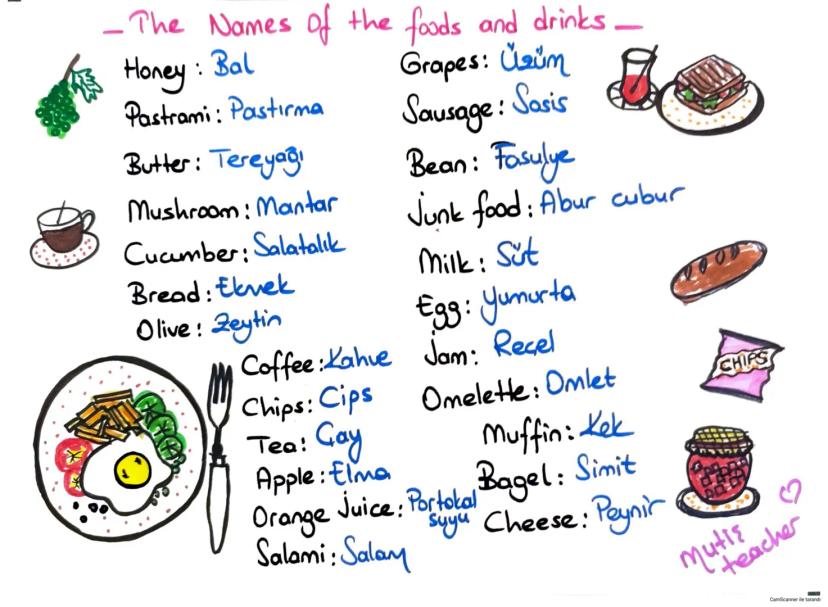 The Names Of the foods and drinks
Honey: Bal
Pastrami: Pastırma
Butter: Tereyağı
Mushroom: Mantar
Cucumber: Salatalık
Bread: Ekmek
Olive: Zeytin
Coffee: Kahve
Chips: Cips
Tea: Çay
Apple: Elma
Orange Juice: Portakal suyu
Salami: Salam
Grapes: Üzüm
Sausage: Sosis
Bean: Fasulye
Junk food: Abur cubur
Milk: Süt
Egg: Yumurta
Jam: Reçel
Omelette: Omlet
Muffin: Kek
Bagel: Simit
Cheese: Peynir
CHIPS
Mutiş
teacher
CamScanner ile tarandı